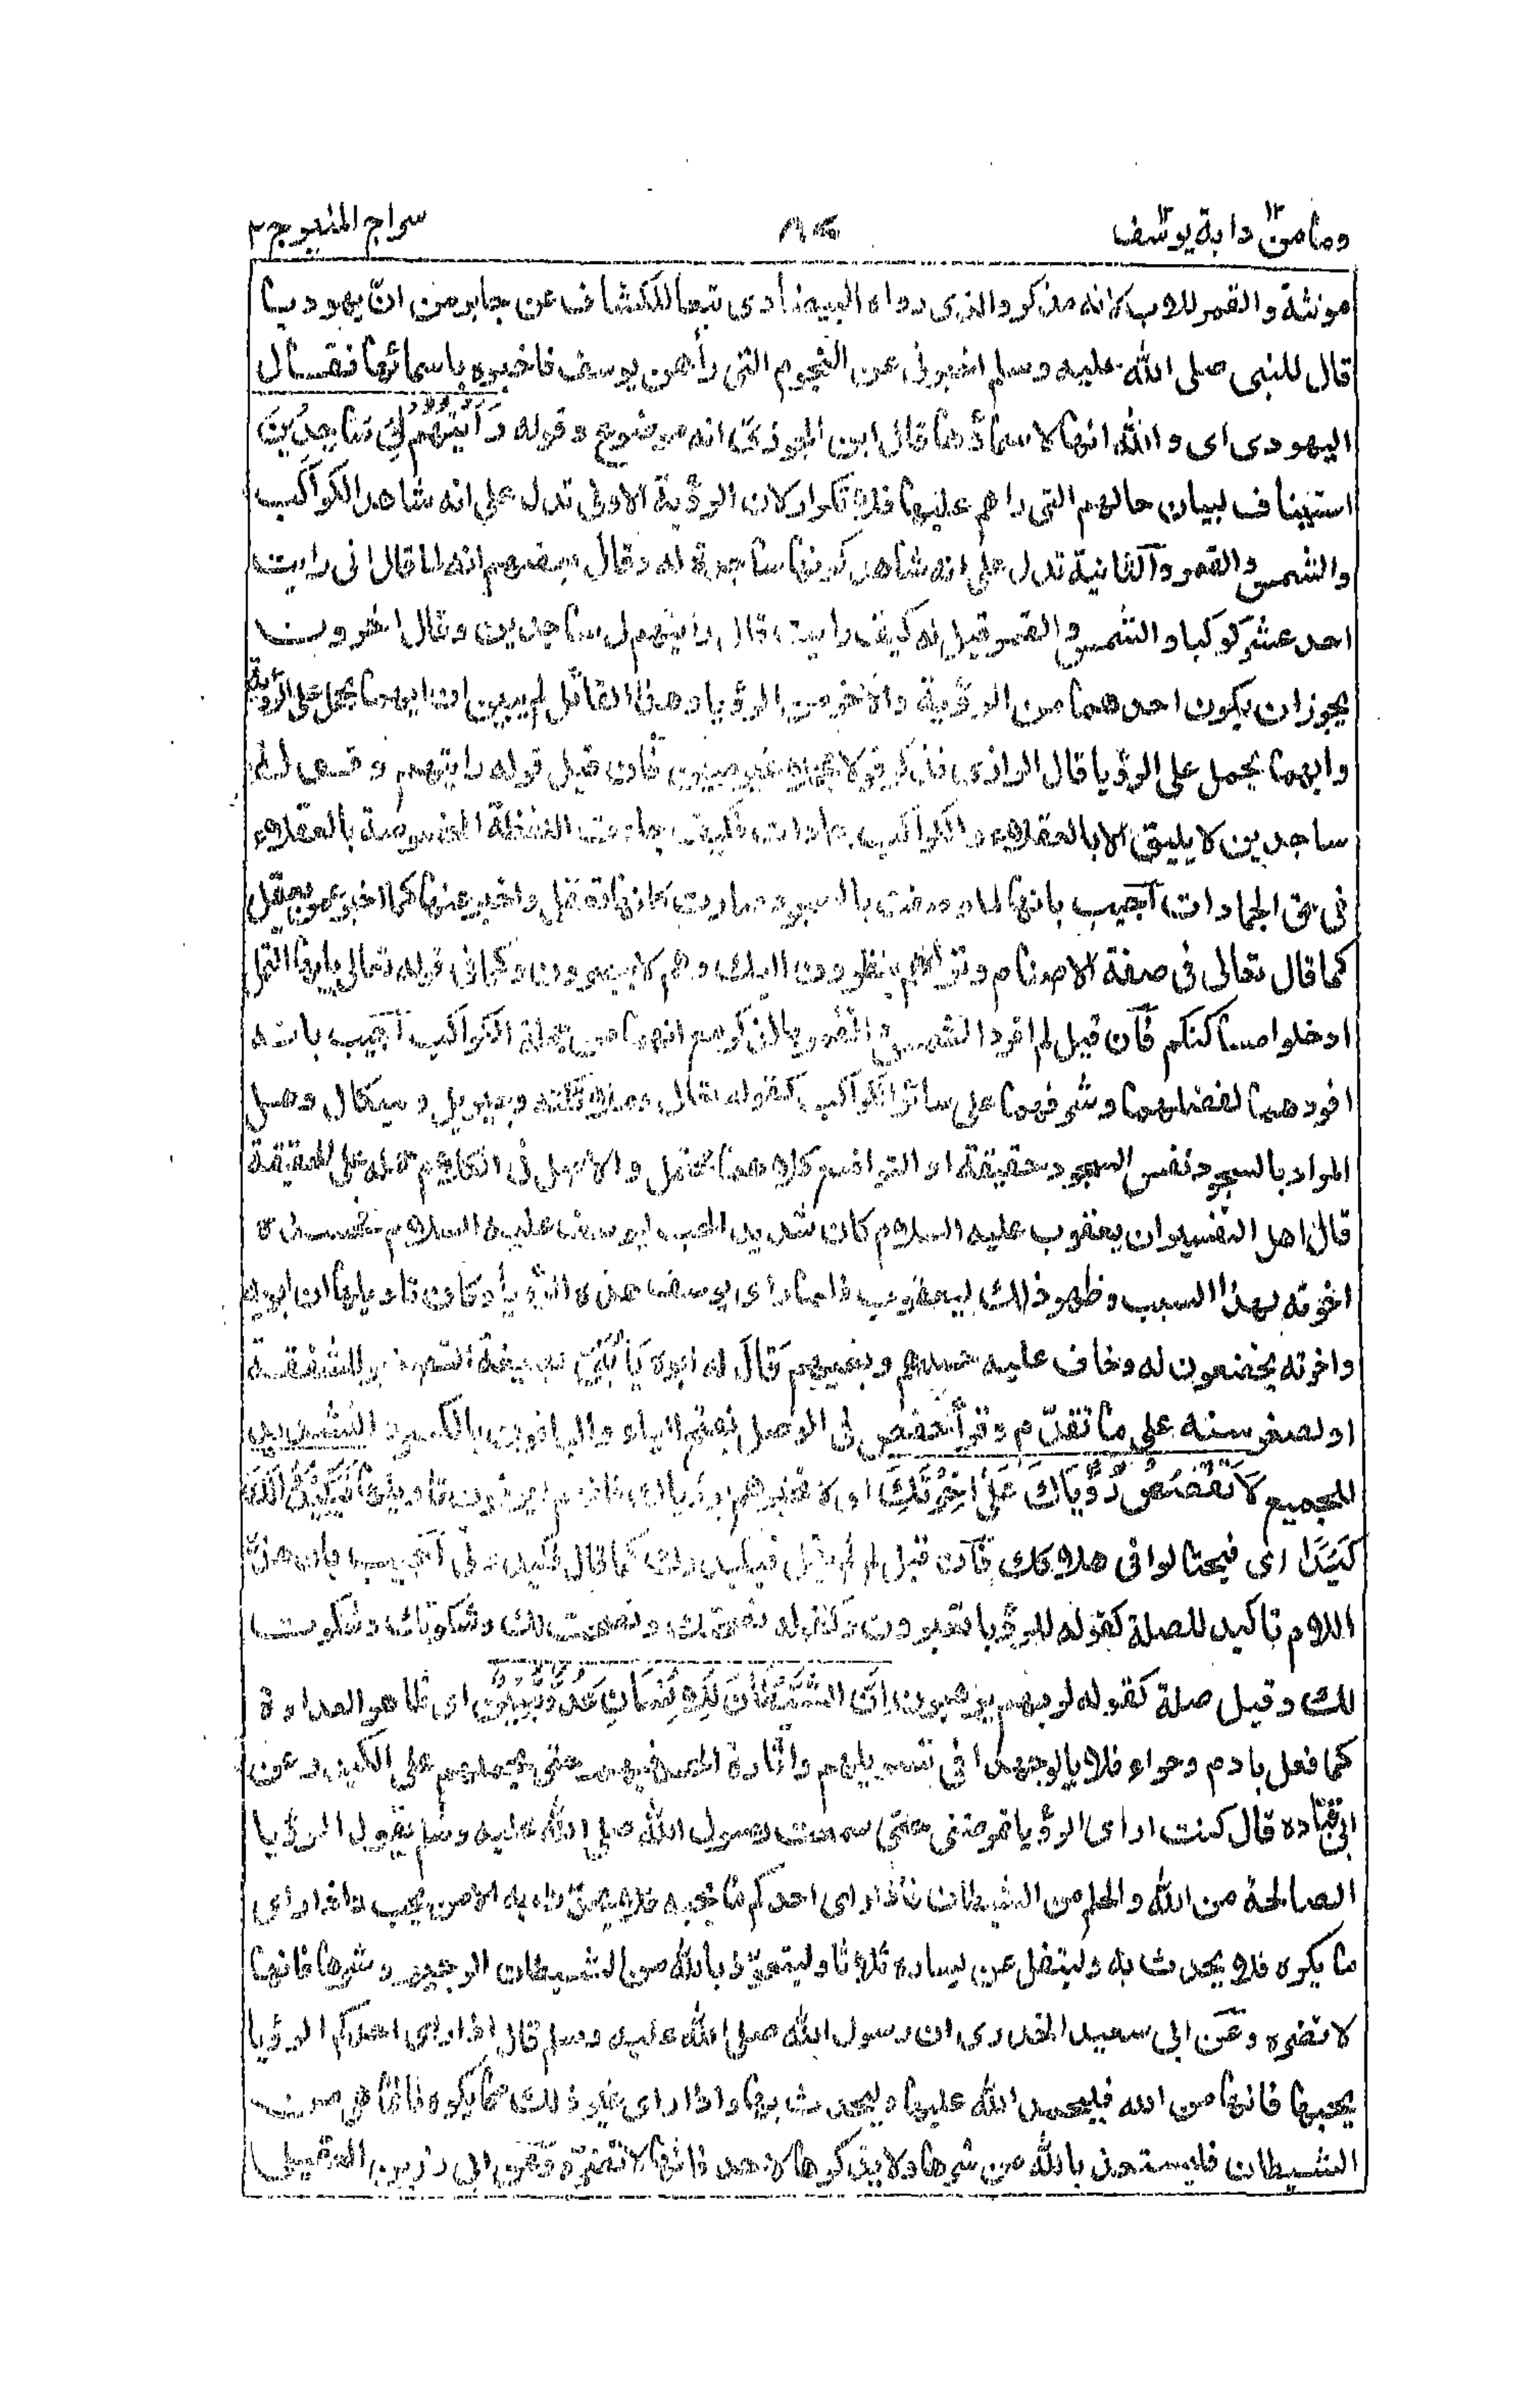 ومامن١٢ دابة يوسف١٢
سراج المنير ج٢
مونثة والقمر للاب لانه مذكر والذى رواه البيضاوى تبعا للكشاف عن جابر من ان يهوديا
قال للنبى صلى الله عليه وسلم اخبرنى عن النجوم التى رأهن يوسف فاخبره باسمائها فقال
اليهودى اى والله انها لاسماؤها قال ابن الجوزى انه موضوع وقوله رَاَيْتُهُمْ لِيْ سَاجِدِيْنَ
استيناف لبيان حالهم التى راهم عليها فلا تكرار لان الرؤية الاولى تدل على انه شاهد الكواكب
والشمس والقمر والثانية تدل على انه شاهد كونها ساجدة له وقال بعضهم انه لما قال انى رايت
احد عشر كوكبا والشمس والقمر قيل له كيف رايت قال رايتهم لى ساجدين وقال اخرون
يجوز ان يكون احدهما من الرؤية والاخر من الرؤيا وهذا القائل لم يبين ان ايهما يحمل على الرؤية
وايهما يحمل على الرؤيا قال الرازى فذكر قولا مجملا غير مبين فان قيل قوله رايتهم وقوله
ساجدين لا يليق الا بالعقلاء والكواكب جمادات فكيف جاءت اللفظة المخصوصة بالعقلاء
فى حق الجمادات اجيب بانها لما وصفت بالسجود صارت كانها تعقل واخبر عنها كما اخبر عمن يعقل
كما قال تعالى فى صفة الاصنام وتراهم ينظرون اليك وهم لا يبصرون وكما فى قوله تعالى يايها النمل
ادخلوا مساكنكم فان قيل لم افرد الشمس والقمر بالذكر مع انهما من جملة الكواكب اجيب بانه
افردهما لفضلهما وشرفهما على سائر الكواكب كقوله تعالى وملائكته وجبريل وميكال وهل
المراد بالسجود نفس السجود حقيقة او التواضع كلاهما محتمل والاصل فى الكلام حمله على الحقيقة
قال اهل التفسير ان يعقوب عليه السلام كان شديد الحب ليوسف عليه السلام فحسده
اخوته بهذا السبب وظهر ذلك ليعقوب فلما راى يوسف هذه الرؤيا وكان تاويلها ان ابويه
واخوته يخضعون له وخاف عليه حسدهم وبغيهم قال له ابوه يَابُنَيَّ بصيغة التصغير للشفقة
او لصغر سنه على ما تقدّم وقرأ حفص فى الوصل بفتح الياء والباقون بالكسر والتشديد
للجميع لَا تَقْصُصْ رُؤْيَاكَ عَلٰى اِخْوَتِكَ اى لا تخبرهم برؤياك فانهم يعرفون تاويلها فَيَكِيْدُوْا لَكَ
كَيْدًا اى فيحتالوا فى هلاكك فان قيل لم لم يقل فيكيدوك كما قال فكيدونى اجيب بان هذه
اللام تاكيد للصلة كقوله للرؤيا تعبرون وكقوله نصحتك ونصحت لك وشكرتك وشكرت
لك وقيل صلة كقوله لربهم يرهبون اِنَّ الشَّيْطَانَ لِلْاِنْسَانِ عَدُوٌّ مُّبِيْنٌ اى ظاهر العداوة
كما فعل بادم وحواء فلا يالو جهدا فى تسويلهم واثارة الحسد فيهم حتى يحملهم على الكيد وعن
ابى قتاده قال كنت ارى الرؤيا تمرضنى حتى سمعت رسول الله صلى الله عليه وسلم يقول الرؤيا
الصالحة من الله والحلم من الشيطان فاذا راى احدكم ما يحبه فلا يحدث به الا من يحب واذا راى
ما يكره فلا يحدث به وليتفل عن يساره ثلاثا وليتعوّذ بالله من الشيطان الرجيم وشرها فانها
لا تضره وعن ابى سعيد الخدرى ان رسول الله صلى الله عليه وسلم قال اذا راى احدكم الرؤيا
يحبها فانها من الله فليحمد الله عليها وليحدث بها واذا راى غير ذلك مما يكره فانما هى من
الشيطان فليستعذ بالله من شرها ولا يذكرها لاحد فانها لا تضره وعن ابى رزين العقيلى